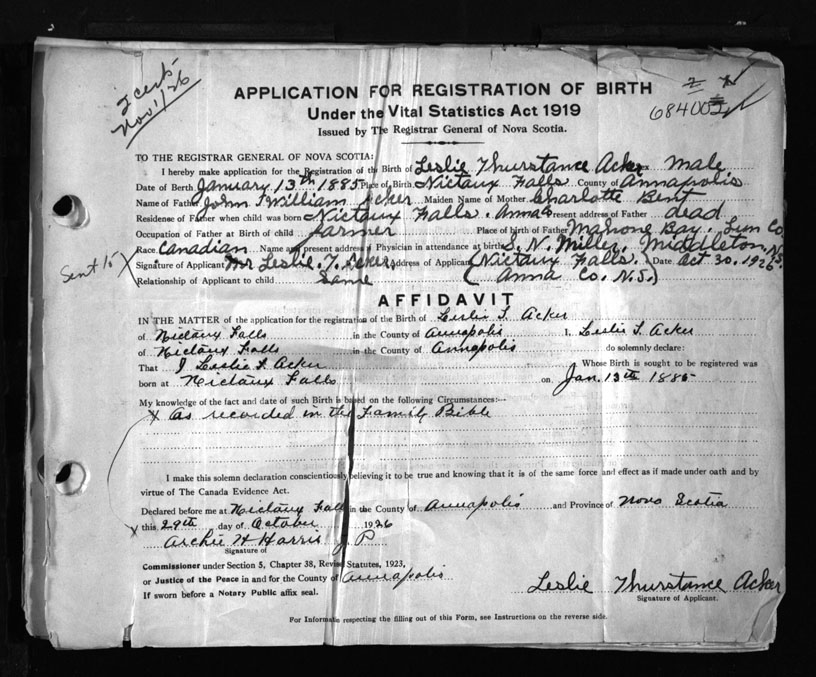 Nov 1/26
APPLICATION FOR REGISTRATION OF BIRTH
Under the Vital Statistics Act 1919
684005
Issued by The Registrar General of Nova Scotia.
TO THE REGISTRAR GENERAL OF NOVA SCOTIA:
I hereby make application for the Registration of the Birth of Leslie Thurstance Acker Sex Male
Date of Birth January 13th 1885 Place of Birth Nictaux Falls County of Annapolis
Name of Father John William Acker Maiden Name of Mother Charlotte Bent
Residence of Father when child was born Nictaux Falls. Anna Co Present address of Father dead
Occupation of Father at Birth of child farmer Place of birth of Father Mahone Bay. Lun Co
Race Canadian Name and present address of Physician in attendance at birth S. N. Miller, Middleton, N.S.
Sent 15 X Signature of Applicant Mr Leslie. T. Acker Address of Applicant (Nictaux Falls. Date Oct 30. 1926
Relationship of Applicant to child Same (Anna Co. N.S.)
AFFIDAVIT
IN THE MATTER of the application for the registration of the Birth of Leslie T. Acker
of Nictaux Falls in the County of Annapolis I, Leslie T. Acker
of Nictaux Falls in the County of Annapolis do solemnly declare:
That I Leslie T. Acker Whose Birth is sought to be registered was
born at Nictaux Falls on Jan. 13th 1885
My knowledge of the fact and date of such Birth is based on the following Circumstances:—
X As recorded in the Family Bible
I make this solemn declaration conscientiously believing it to be true and knowing that it is of the same force and effect as if made under oath and by
virtue of The Canada Evidence Act.
Declared before me at Nictaux Falls in the County of Annapolis and Province of Nova Scotia
X this 29th day of October 1926
Archie W Harris J. P.
Signature of
Commissioner under Section 5, Chapter 38, Revised Statutes, 1923,
or Justice of the Peace in and for the County of Annapolis
If sworn before a Notary Public affix seal.
Leslie Thurstance Acker
Signature of Applicant.
For Information respecting the filling out of this Form, see Instructions on the reverse side.